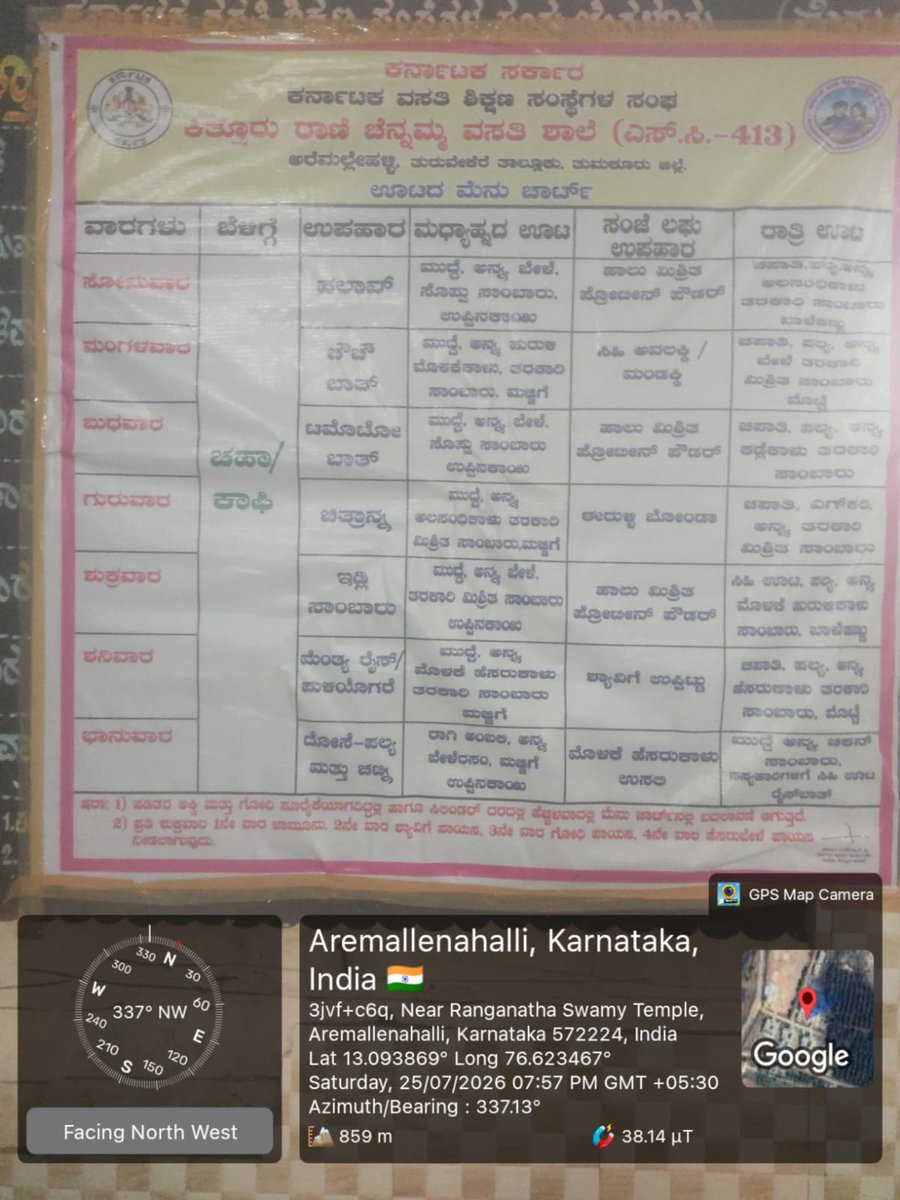 ಕರ್ನಾಟಕ ಸರ್ಕಾರ
ಕರ್ನಾಟಕ ವಸತಿ ಶಿಕ್ಷಣ ಸಂಸ್ಥೆಗಳ ಸಂಘ
ಕಿತ್ತೂರು ರಾಣಿ ಚೆನ್ನಮ್ಮ ವಸತಿ ಶಾಲೆ (ಎಸ್.ಸಿ.-413)
ಅರೆಮಲ್ಲೇಹಳ್ಳಿ, ತುರುವೇಕೆರೆ ತಾಲ್ಲೂಕು, ತುಮಕೂರು ಜಿಲ್ಲೆ.
ಊಟದ ಮೆನು ಚಾರ್ಟ್
ವಾರಗಳು ಬೆಳಿಗ್ಗೆ ಉಪಹಾರ ಮಧ್ಯಾಹ್ನದ ಊಟ ಸಂಜೆ ಲಘು ಉಪಹಾರ ರಾತ್ರಿ ಊಟ
ಚಹಾ/
ಕಾಫಿ
ಸೋಮವಾರ
ಪಲಾವ್
ಮುದ್ದೆ, ಅನ್ನ, ಬೇಳೆ,
ಸೊಪ್ಪು ಸಾಂಬಾರು,
ಉಪ್ಪಿನಕಾಯಿ
ಹಾಲು ಮಿಶ್ರಿತ
ಪ್ರೋಟೀನ್ ಪೌಡರ್
ಚಪಾತಿ,ಪಲ್ಯ,ಅನ್ನ,
ಅಲಸಂಧಿಕಾಳು
ತರಕಾರಿ ಸಾಂಬಾರು
ಬಾಳೆಹಣ್ಣು
ಮಂಗಳವಾರ
ಚೌಚೌ
ಬಾತ್
ಮುದ್ದೆ, ಅನ್ನ, ಹುರುಳಿ
ಮೊಳಕೆಕಾಳು, ತರಕಾರಿ
ಸಾಂಬಾರು, ಮಜ್ಜಿಗೆ
ಸಿಹಿ ಅವಲಕ್ಕಿ /
ಮಂಡಕ್ಕಿ
ಚಪಾತಿ, ಪಲ್ಯ, ಅನ್ನ,
ಬೇಳೆ ತರಕಾರಿ
ಮಿಶ್ರಿತ ಸಾಂಬಾರು
ಮೊಟ್ಟೆ
ಬುಧವಾರ
ಟಮೊಟೋ
ಬಾತ್
ಮುದ್ದೆ, ಅನ್ನ, ಬೇಳೆ,
ಸೊಪ್ಪು ಸಾಂಬಾರು
ಉಪ್ಪಿನಕಾಯಿ
ಹಾಲು ಮಿಶ್ರಿತ
ಪ್ರೋಟೀನ್ ಪೌಡರ್
ಚಪಾತಿ, ಪಲ್ಯ, ಅನ್ನ,
ಕಡ್ಲೆಕಾಳು ತರಕಾರಿ
ಸಾಂಬಾರು
ಗುರುವಾರ
ಚಿತ್ರಾನ್ನ
ಮುದ್ದೆ, ಅನ್ನ,
ಅಲಸಂಧಿಕಾಳು ತರಕಾರಿ
ಮಿಶ್ರಿತ ಸಾಂಬಾರು,ಮಜ್ಜಿಗೆ
ಈರುಳ್ಳಿ ಬೋಂಡಾ
ಚಪಾತಿ, ಎಗ್‌ಕರಿ,
ಅನ್ನ, ತರಕಾರಿ
ಮಿಶ್ರಿತ ಸಾಂಬಾರು
ಶುಕ್ರವಾರ
ಇಡ್ಲಿ
ಸಾಂಬಾರು
ಮುದ್ದೆ, ಅನ್ನ, ಬೇಳೆ,
ತರಕಾರಿ ಮಿಶ್ರಿತ ಸಾಂಬಾರು
ಉಪ್ಪಿನಕಾಯಿ
ಹಾಲು ಮಿಶ್ರಿತ
ಪ್ರೋಟೀನ್ ಪೌಡರ್
ಸಿಹಿ ಊಟ, ಪಲ್ಯ, ಅನ್ನ,
ಮೊಳಕೆ ಹುರುಳಿಕಾಳು
ಸಾಂಬಾರು, ಬಾಳೆಹಣ್ಣು
ಶನಿವಾರ
ಮೆಂತ್ಯ ರೈಸ್/
ಪುಳಿಯೋಗರೆ
ಮುದ್ದೆ, ಅನ್ನ,
ಮೊಳಕೆ ಹೆಸರುಕಾಳು
ತರಕಾರಿ ಸಾಂಬಾರು
ಮಜ್ಜಿಗೆ
ಶ್ಯಾವಿಗೆ ಉಪ್ಪಿಟ್ಟು
ಚಪಾತಿ, ಪಲ್ಯ, ಅನ್ನ,
ಹೆಸರುಕಾಳು ತರಕಾರಿ
ಸಾಂಬಾರು, ಮೊಟ್ಟೆ
ಭಾನುವಾರ
ದೋಸೆ-ಪಲ್ಯ
ಮತ್ತು ಚಟ್ನಿ
ರಾಗಿ ಅಂಬಲಿ, ಅನ್ನ,
ಬೇಳೆರಸಂ, ಮಜ್ಜಿಗೆ
ಉಪ್ಪಿನಕಾಯಿ
ಮೊಳಕೆ ಹೆಸರುಕಾಳು
ಉಸಲಿ
ಮುದ್ದೆ ಅನ್ನ, ಚಿಕನ್
ಸಾಂಬಾರು,
ಸಸ್ಯಹಾರಿಗಳಿಗೆ ಸಿಹಿ ಊಟ
ರೈಸ್‌ಬಾತ್
ಷರಾ: 1) ಪಡಿತರ ಅಕ್ಕಿ ಮತ್ತು ಗೋಧಿ ಪೂರೈಕೆಯಾಗದಿದ್ದಲ್ಲಿ ಹಾಗೂ ಸಿಲಿಂಡರ್ ದರದಲ್ಲಿ ಹೆಚ್ಚಳವಾದಲ್ಲಿ ಮೆನು ಚಾರ್ಟ್‌ನಲ್ಲಿ ಬದಲಾವಣೆ ಆಗುತ್ತದೆ.
2) ಪ್ರತಿ ಶುಕ್ರವಾರ 1ನೇ ವಾರ ಜಾಮೂನು, 2ನೇ ವಾರ ಶ್ಯಾವಿಗೆ ಪಾಯಸ, 3ನೇ ವಾರ ಗೋಧಿ ಪಾಯಸ, 4ನೇ ವಾರ ಹೆಸರುಬೇಳೆ ಪಾಯಸ
ನೀಡಲಾಗುವುದು.
GPS Map Camera
Aremallenahalli, Karnataka,
India
3jvf+c6q, Near Ranganatha Swamy Temple,
Aremallenahalli, Karnataka 572224, India
Lat 13.093869° Long 76.623467°
Saturday, 25/07/2026 07:57 PM GMT +05:30
Azimuth/Bearing : 337.13°
859 m 38.14 µT
Google
330 N 30 60 E 120 150 S 210 240 W 300
337° NW
Facing North West